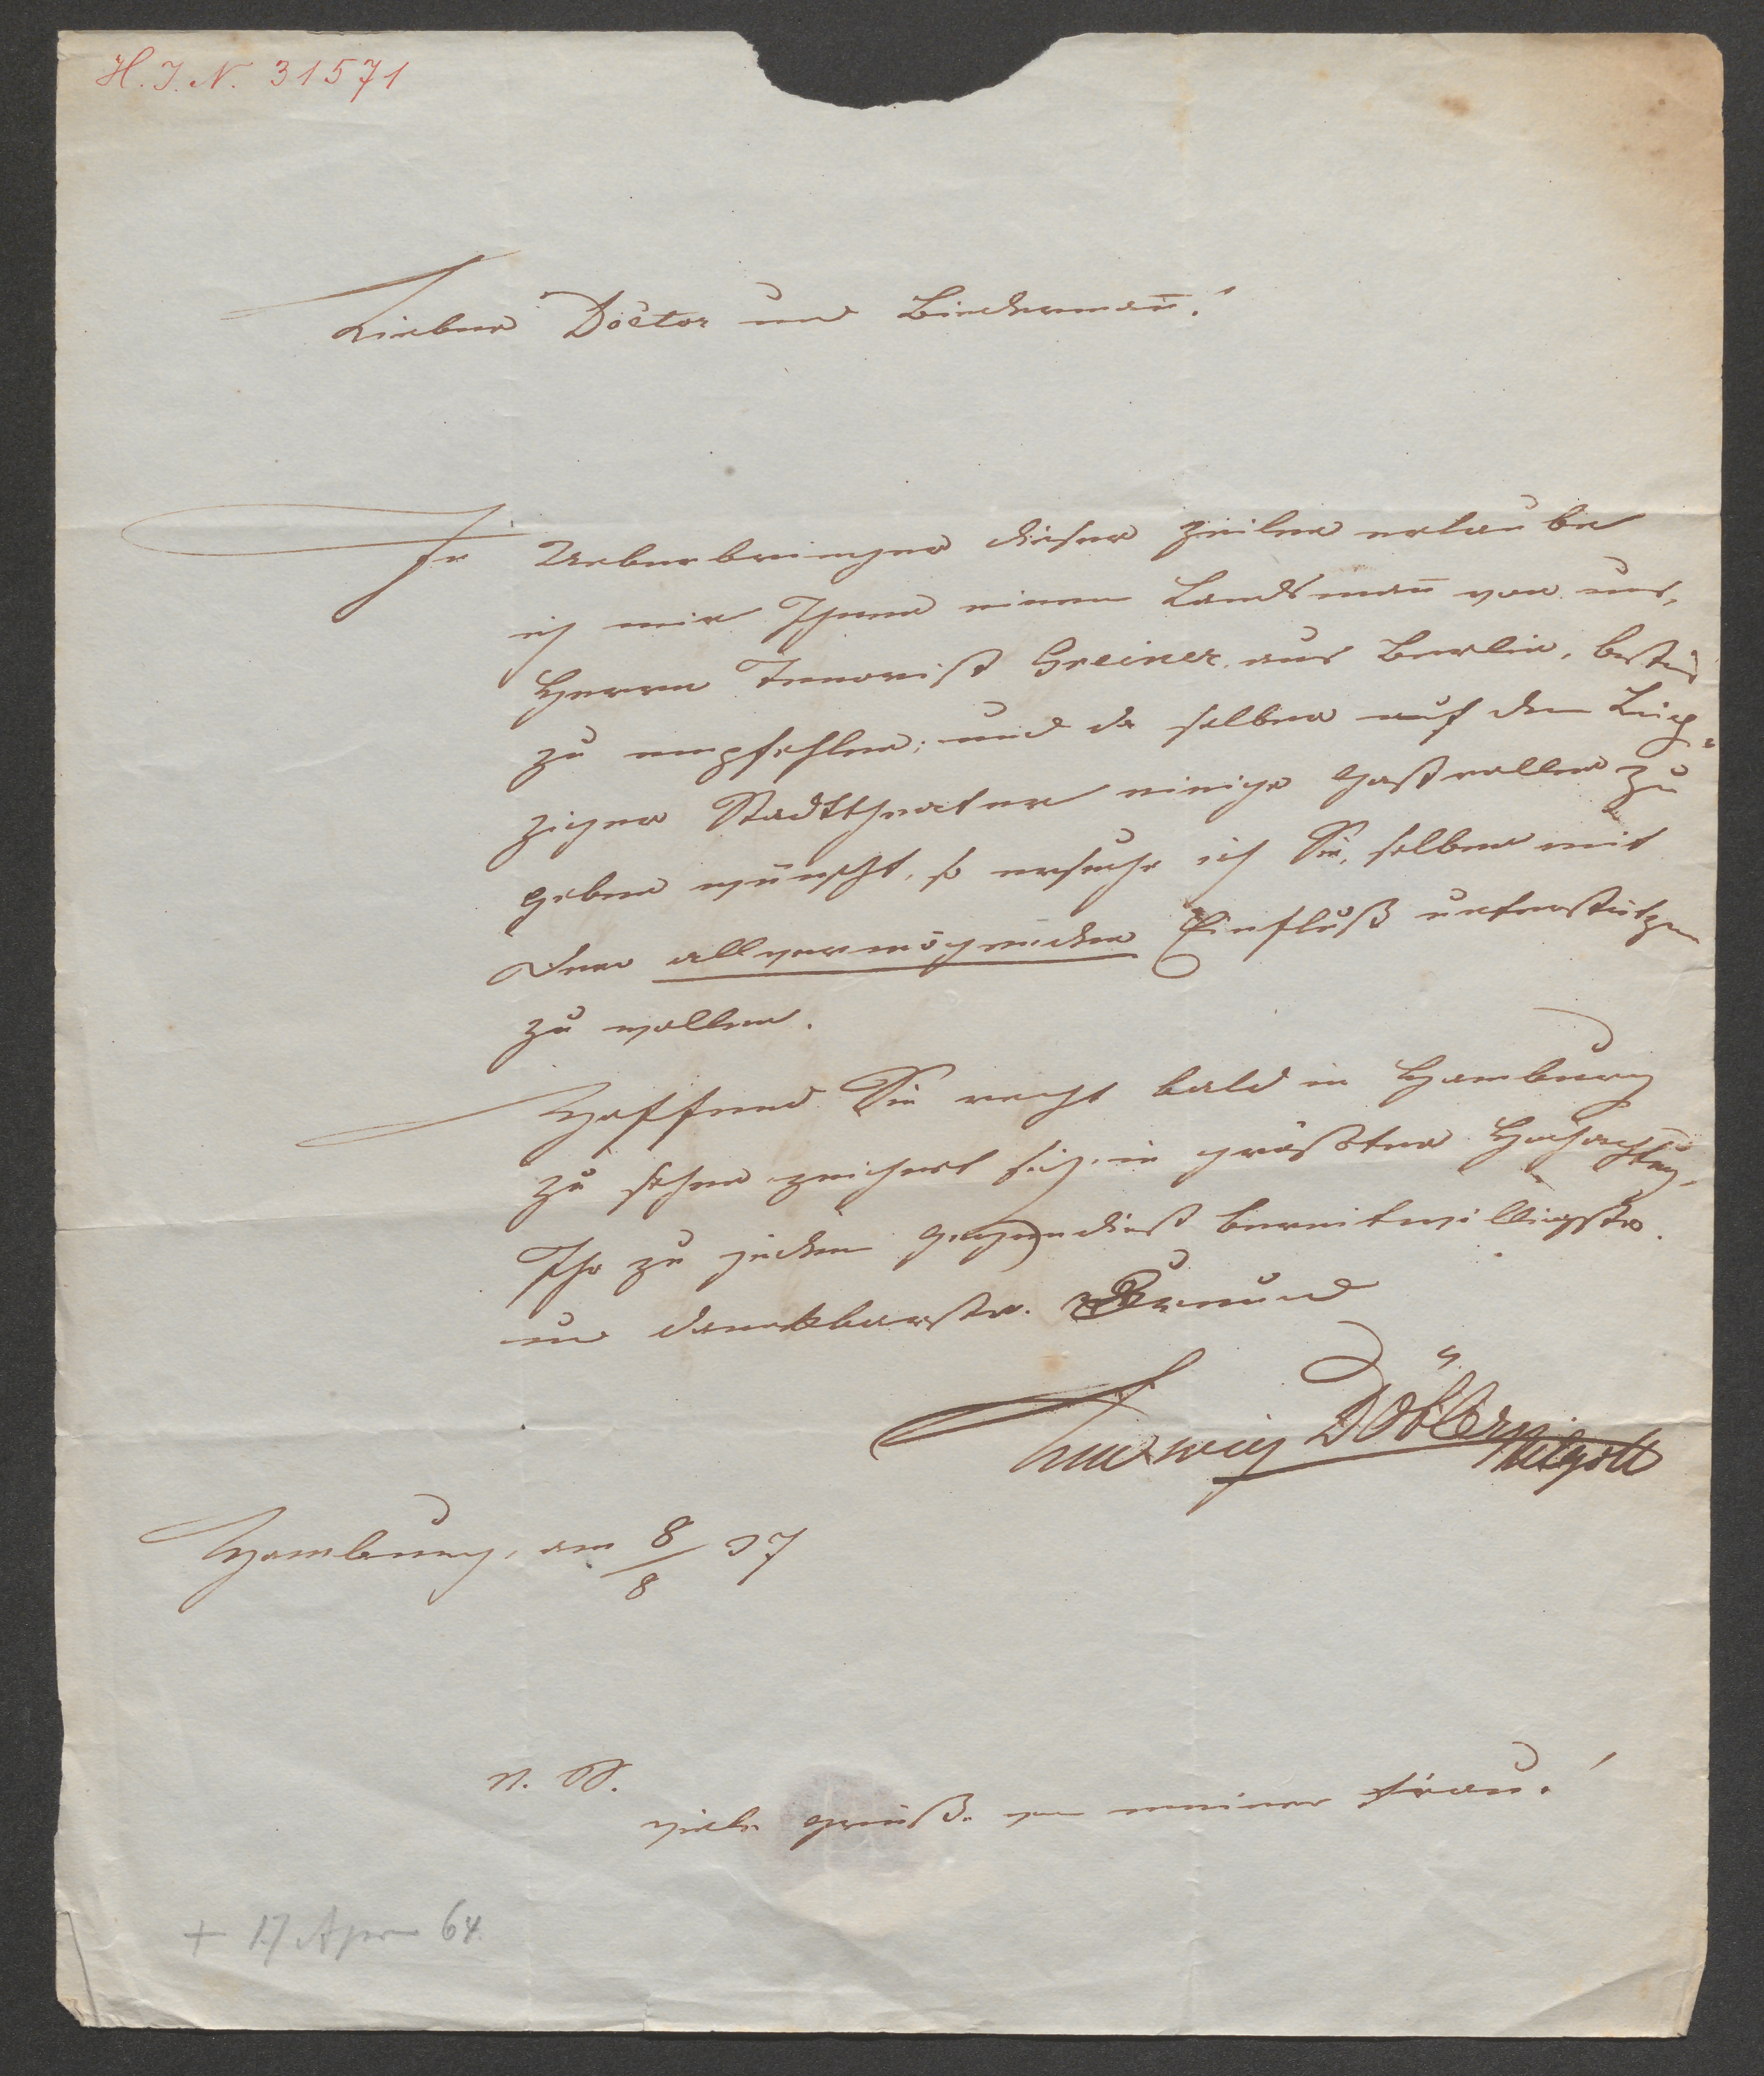 H. J. N. 31571
Lieber Doctor und Biedermañ!
In Ueberbringer dieser Zeilen erlaube
ich mir Ihnen einen Landsmañ von uns,
Herrn Tenorist Greiner aus Berlin, bestens
zu empfehlen; und da selber auf dem Leip=
ziger Stadttheater einige Gastrollen zu
geben wünscht, so ersuche ich Sie, selben mit
Ihren allvermögenden Einfluß unterstützen
zu wollen.
Hoffend Sie recht bald in Hamburg
zu sehen zeichnet sich in größter Hochachtung
Ihr zu jeden Gegendienst bereitwilligster
und dankbarster Freund
Ludwig Döbler
Hamburg, am 8/8 37
N. S.
viele Grüße von meiner Frau!
+ 17 Apr 64